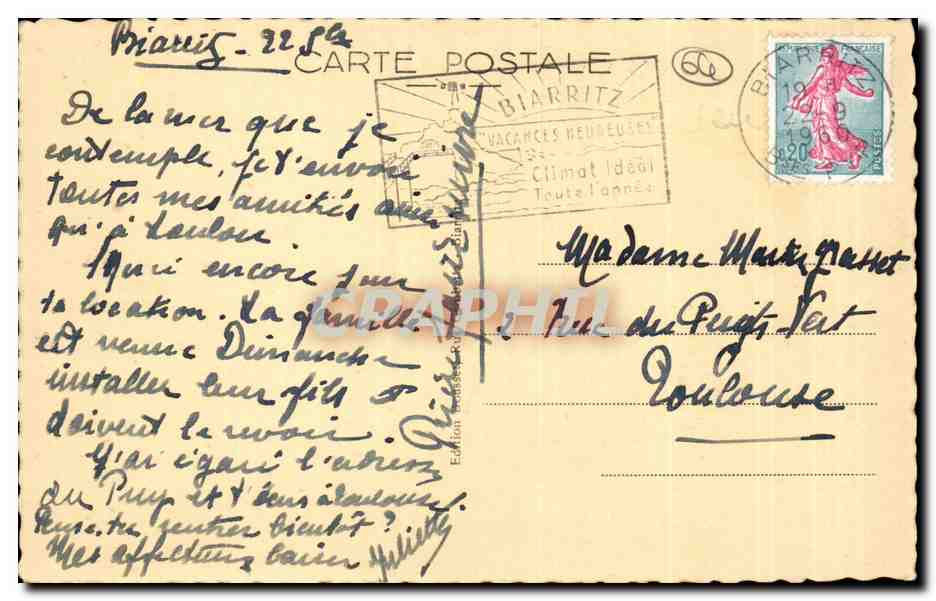 Biarritz - 22 Sbe
CARTE POSTALE
60
BIARRITZ
"VACANCES HEUREUSES"
Climat Idéal
Toute l'année
BIARRITZ
19
1960
REPUBLIQUE FRANÇAISE
0,20
POSTES
De la mer que je
contemple, je t'envoie
toutes mes amitiés ainsi
qu'à Loulou
Merci encore pour
ta location. La famille
est venue Dimanche
installer leur fils et
doivent le revoir.
J'ai égaré l'adresse
du Puy et t'écris à Toulouse.
Penses-tu rentrer bientôt?
Mes affectueux baisers
Juliette
Edition
Madame
2 Rue du Puits-Vert
Toulouse
CPAPHIL